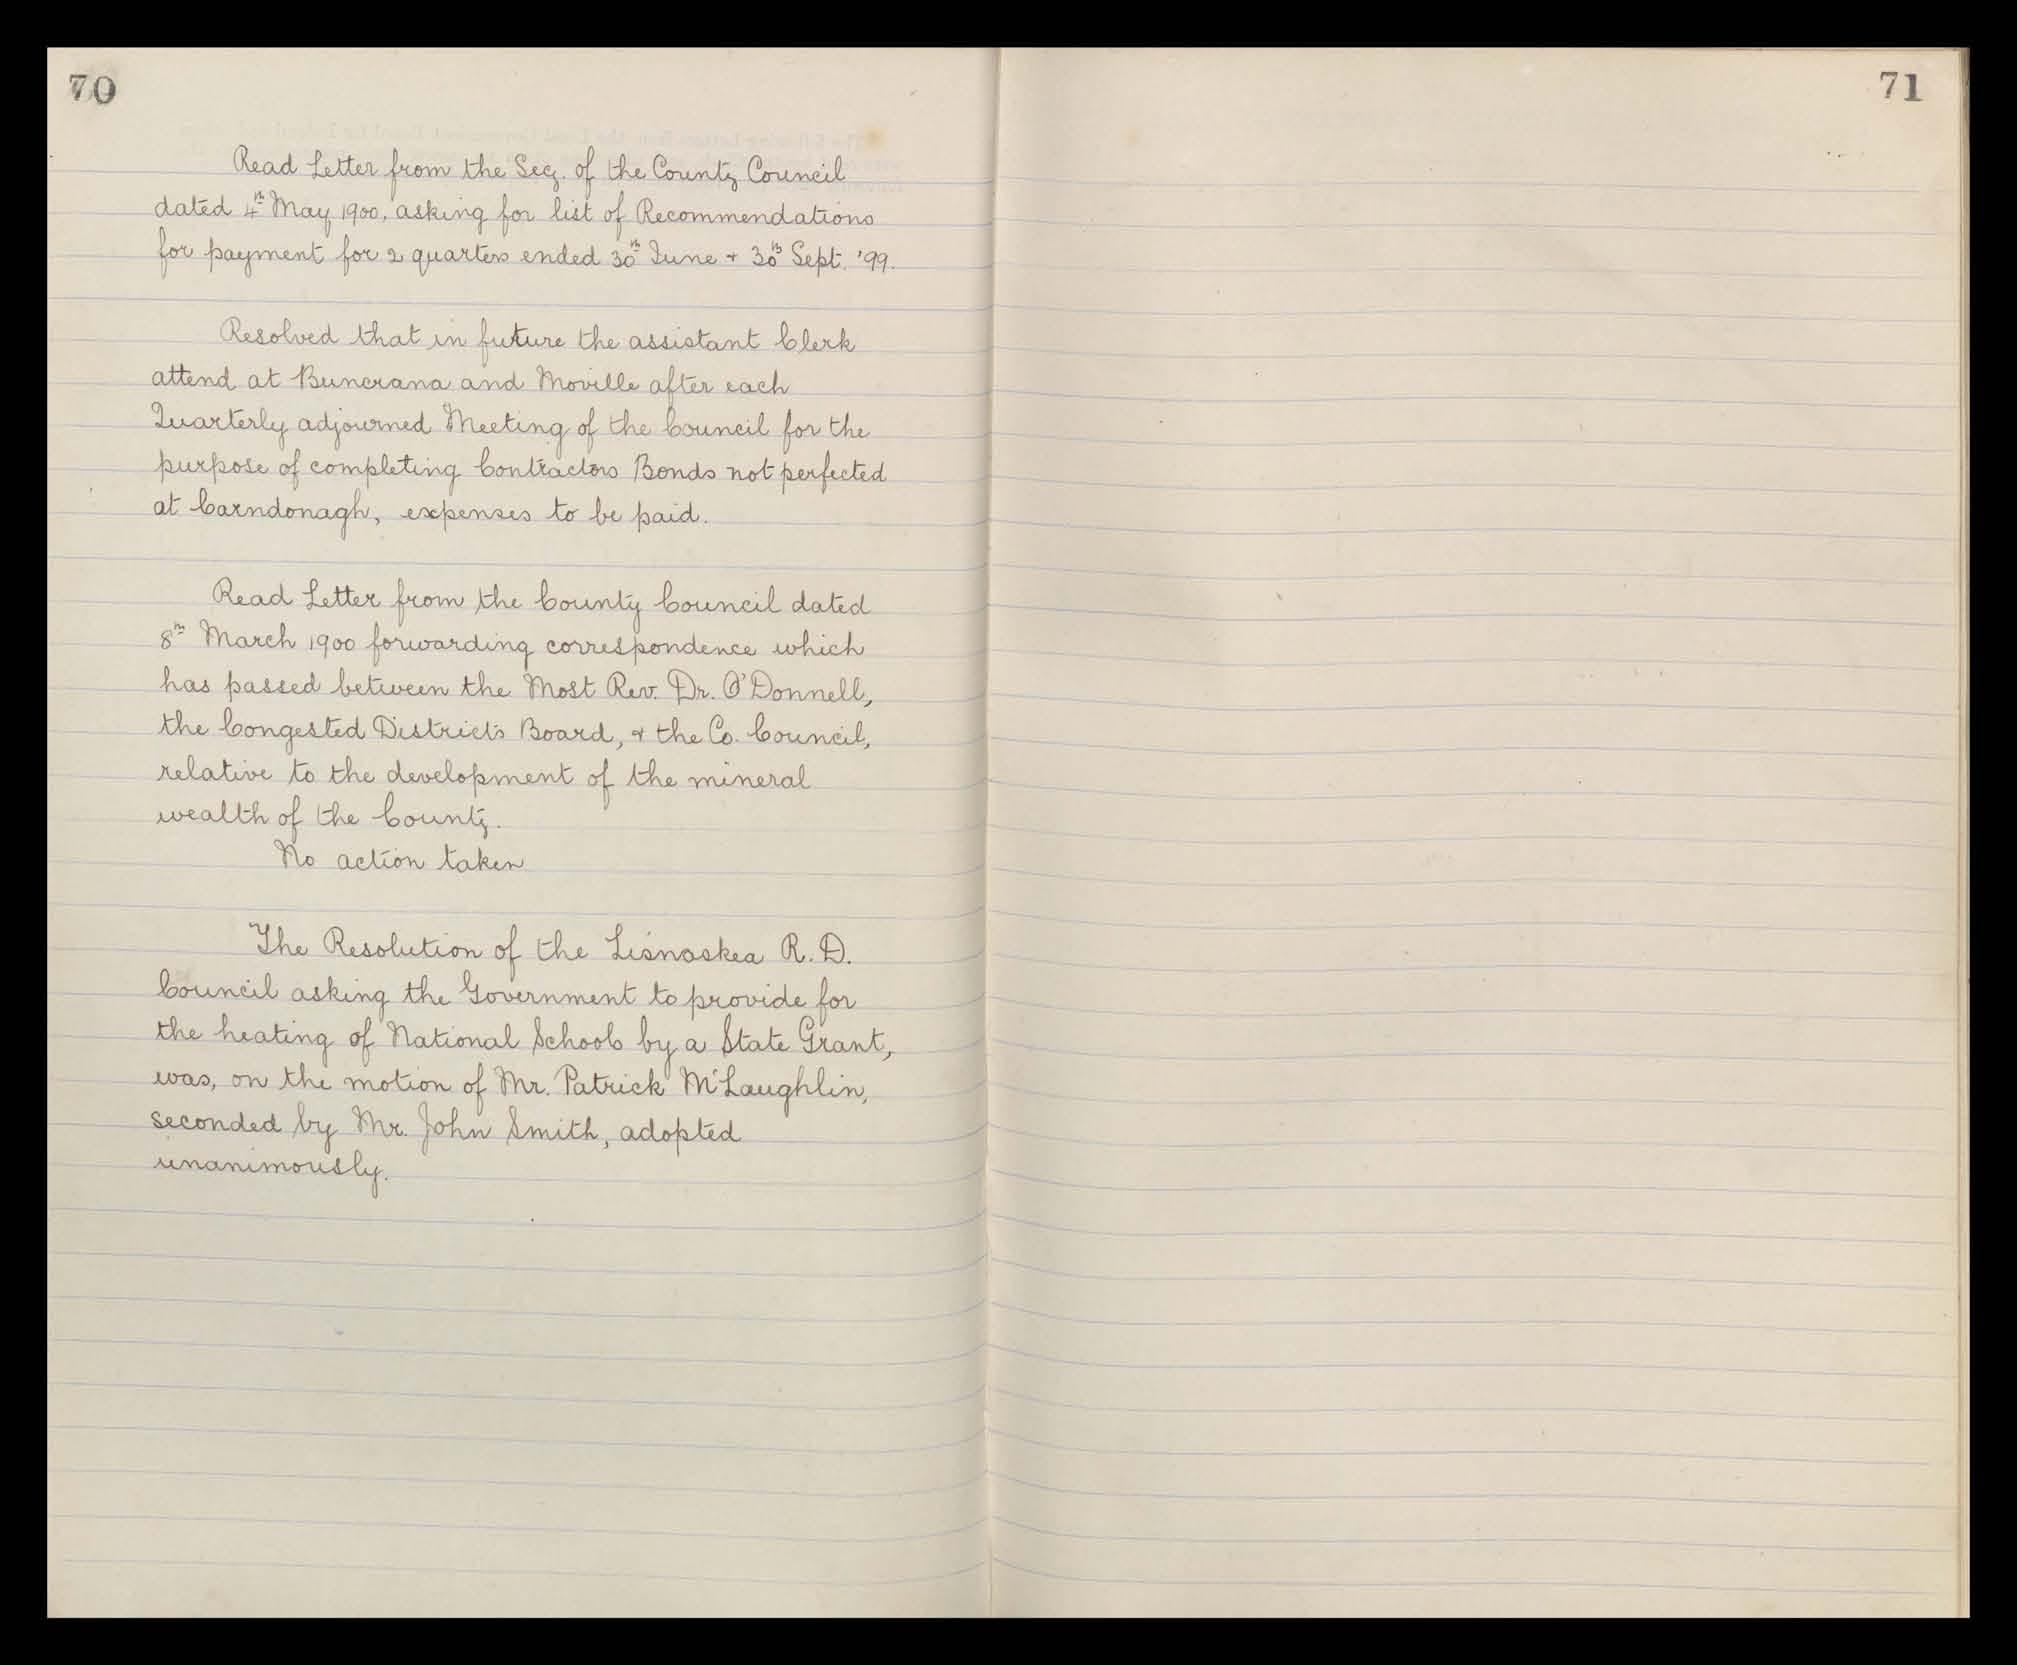 70
71
Read Letter from the Secy. of the County Council
dated 4th May 1900, asking for list of Recommendations
for payment for 2 quarters ended 30th June + 30th Sept. '99.
Resolved that in future the assistant Clerk
attend at Buncrana and Moville after each
Quarterly adjourned Meeting of the Council for the
purpose of completing Contractors Bonds not perfected
at Carndonagh, expenses to be paid.
Read Letter from the County Council dated
8th March 1900 forwarding correspondence which
has passed between the Most Rev. Dr. O'Donnell,
the Congested Districts Board, + the Co. Council,
relative to the development of the mineral
wealth of the County.
No action taken
The Resolution of the Lisnaskea R. D.
Council asking the Government to provide for
the heating of National Schools by a State Grant,
was, on the motion of Mr. Patrick McLaughlin,
seconded by Mr. John Smith, adopted
unanimously.